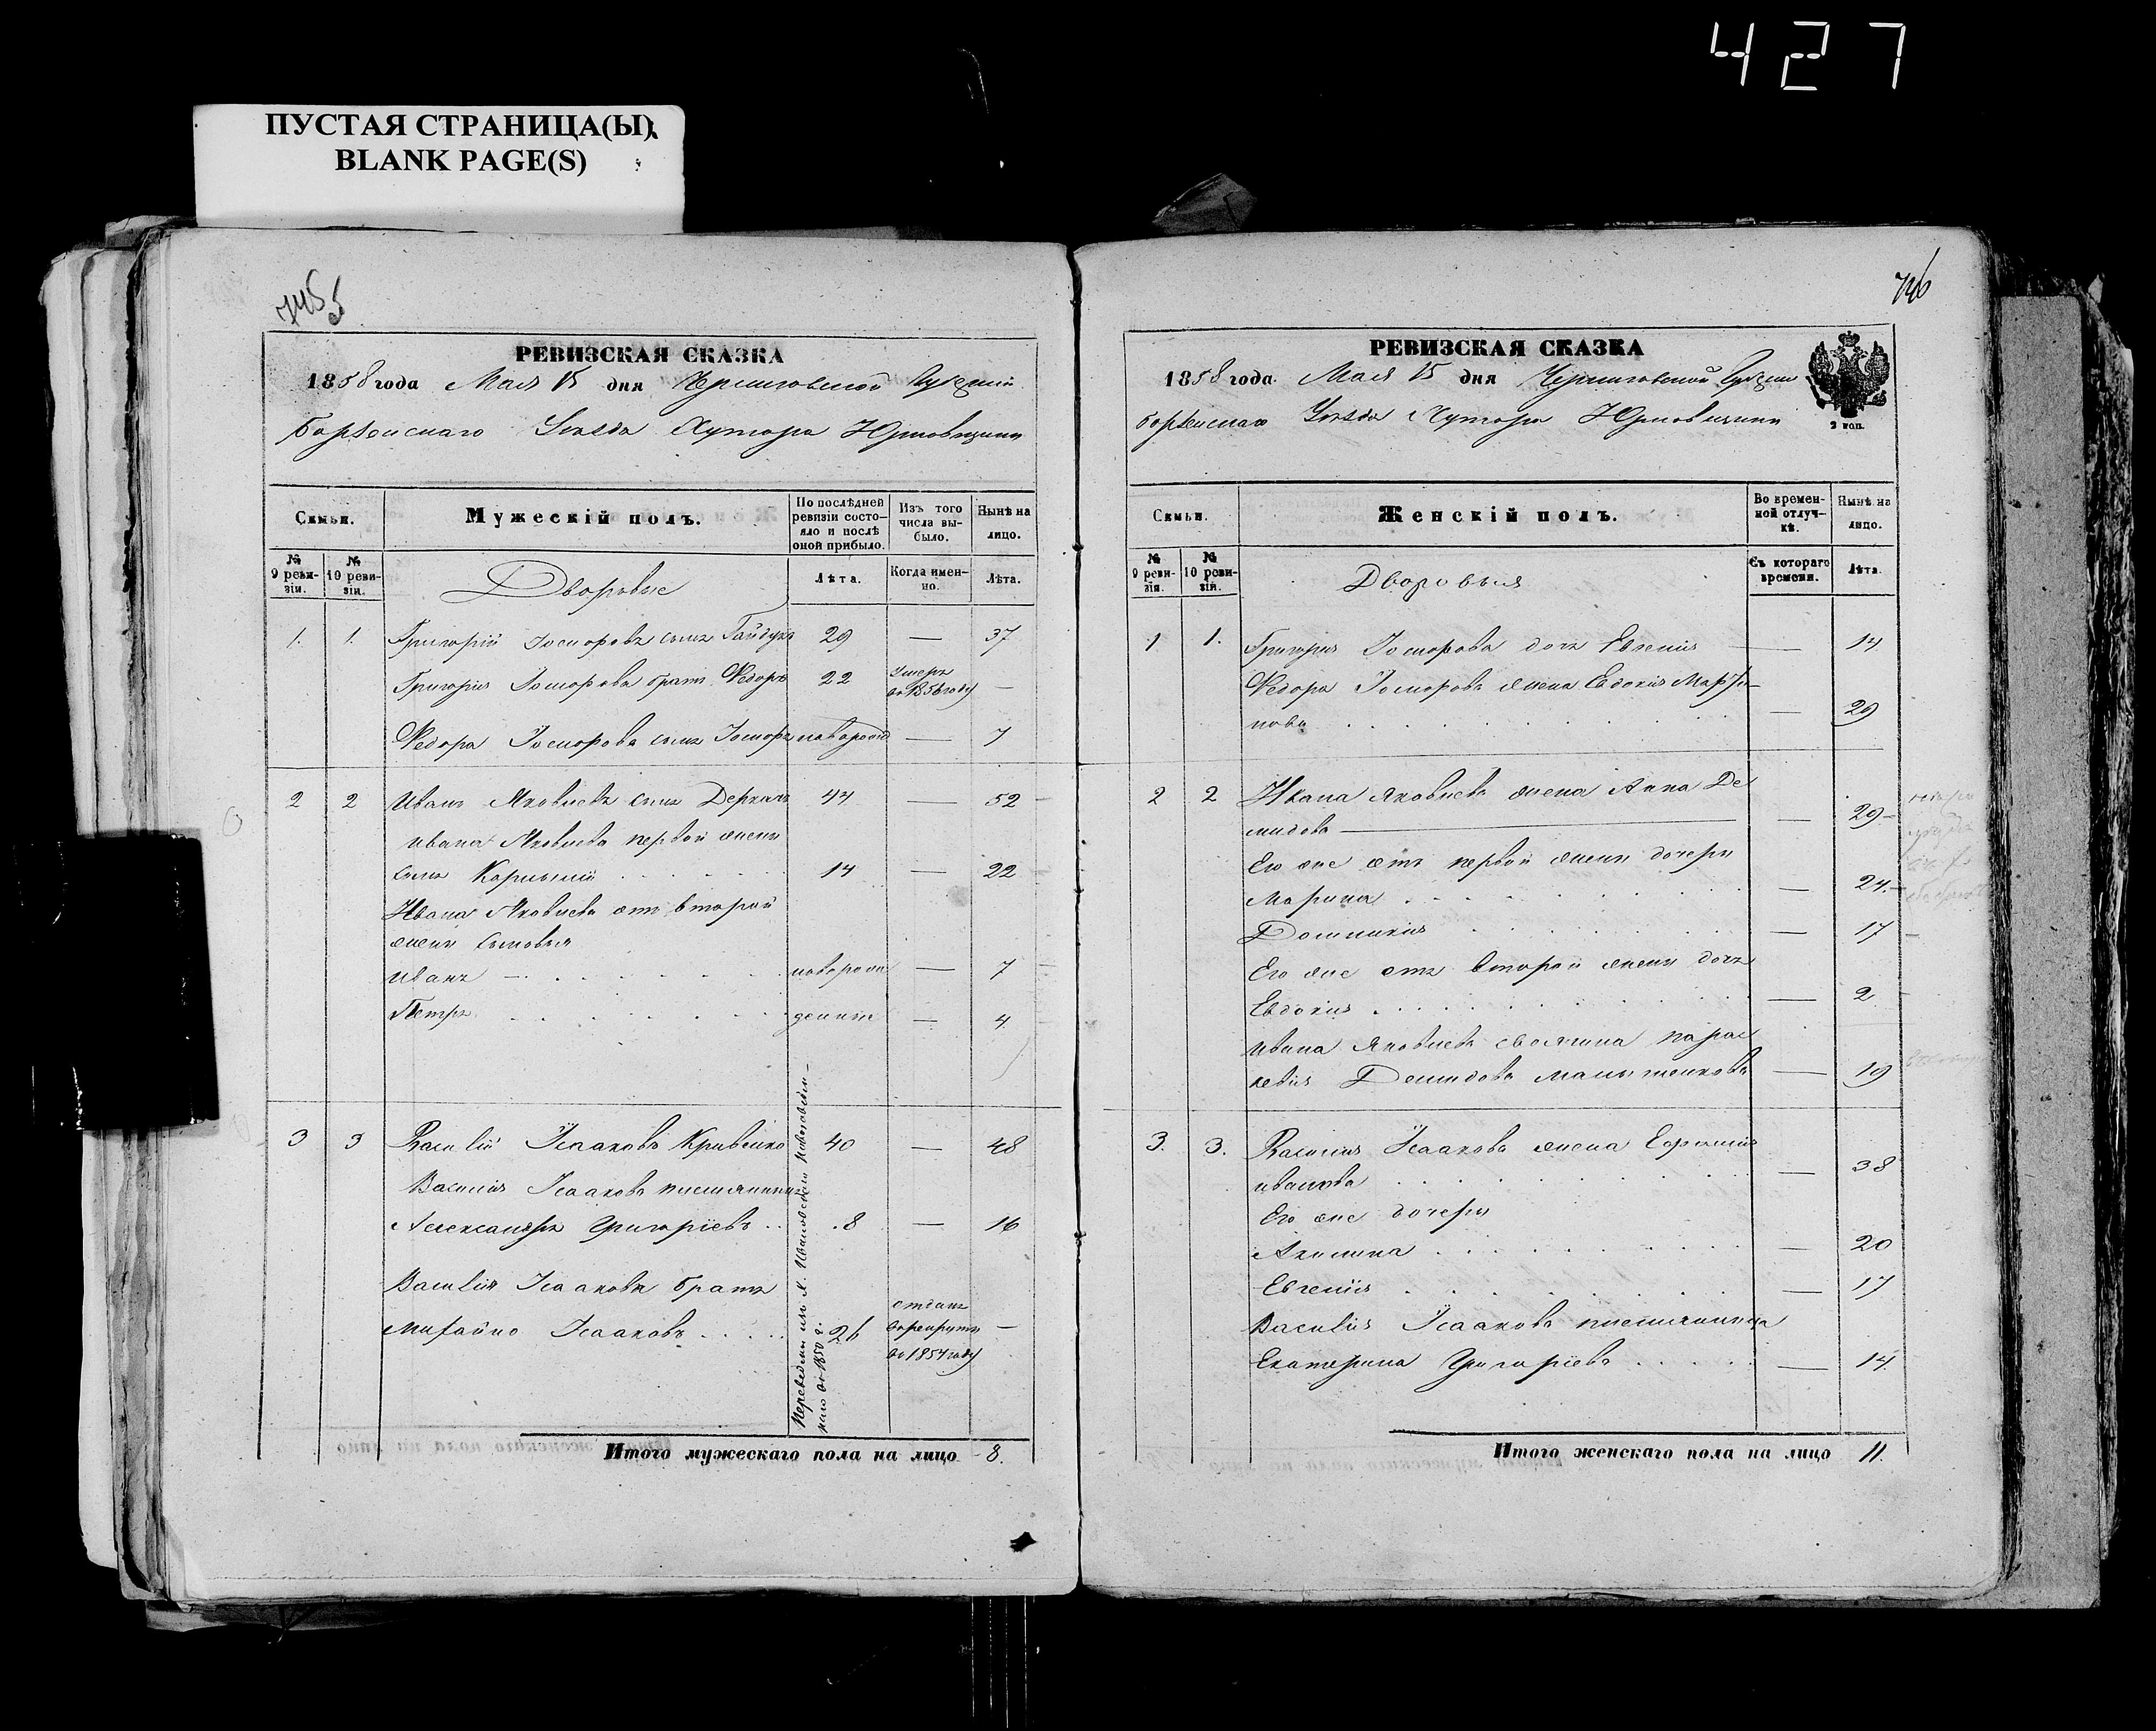 427
ПУСТАЯ СТРАНИЦА(Ы)
BLANK PAGE(S)
745
РЕВИЗСКАЯ СКАЗКА
1858 года Мая 15 дня Черниговской Губерніи
Борзенскаго Уезда Хутора
Семьи.
Мужескій полъ.
По послѣдней ревизіи состояло и послѣ оной прибыло.
Изъ того числа выбыло.
Нынѣ на лицо.
№ 9 ревизіи.
№ 10 ревизіи.
Дворовые
Лѣта.
Когда именно.
Лѣта.
1. 1. Григорій сынъ Гайдукъ 29 — 37
Григорія братъ Федоръ 22 умеръ въ 1856 году —
Федора сынъ новорожд — 7
2 2 Иванъ Яковлевъ сынъ Деркачъ 44 — 52
Ивана Яковлева первой жены
сынъ Корнилій 14 — 22
Ивана Яковлева отъ второй
жены сыновья
Иванъ новорож — 7
Петръ денные — 4
3 3 Василій Исааковъ Кривенко 40 — 48
Василія Исаакова племянникъ
Александръ Григоріевъ 8 — 16
Василія Исаакова братъ
Михайло Исааковъ 26 отданъ в рекруты въ 1854 году —
Переведены изъ
въ 1850 г.
Итого мужескаго пола на лицо 8.
746
РЕВИЗСКАЯ СКАЗКА
1858 года Мая 15 дня Черниговской Губерніи
Борзенскаго Уезда Хутора
2 коп.
Семьи.
Женскій полъ.
Во временной отлучкѣ.
Нынѣ на лицо.
№ 9 ревизіи.
№ 10 ревизіи.
Дворовыя
Съ котораго времени.
Лѣта.
1 1. Григорія дочь Евгенія — 14
Федора жена Евдокія
нова — 29
2 2 Ивана Яковлева жена Анна Де
мидова — 29
Его же отъ первой жены дочери
Марина — 24
Домникія — 17
Его же отъ второй жены дочь
Евдокія — 2
Ивана Яковлева своячина Парас
кевія Демидова — 19
3. 3. Василія Исаакова жена Ефимія
Иванова — 38
Его же дочери
Акилина — 20
Евгенія — 17
Василія Исаакова племянница
Екатерина Григоріева — 14
Итого женскаго пола на лицо 11.